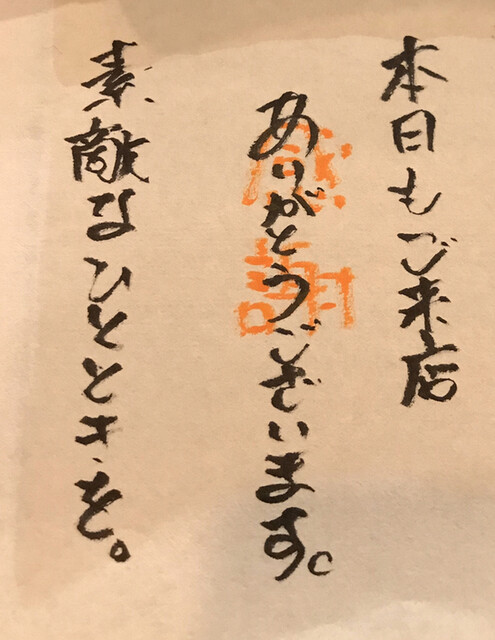 本日もご来店
ありがとうございます。
感謝
素敵なひとときを。